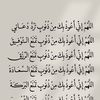 اللهم إني أعوذ بك من ذنوب ترد دعائي
اللهم إني أعوذ بك من ذنوب تمنع التوفيق
اللهم إني أعوذ بك من ذنوب تمنع الرزق
اللهم إني أعوذ بك من ذنوب تمنع السعادة
اللهم إني أعوذ بك من ذنوب تمنع البركة